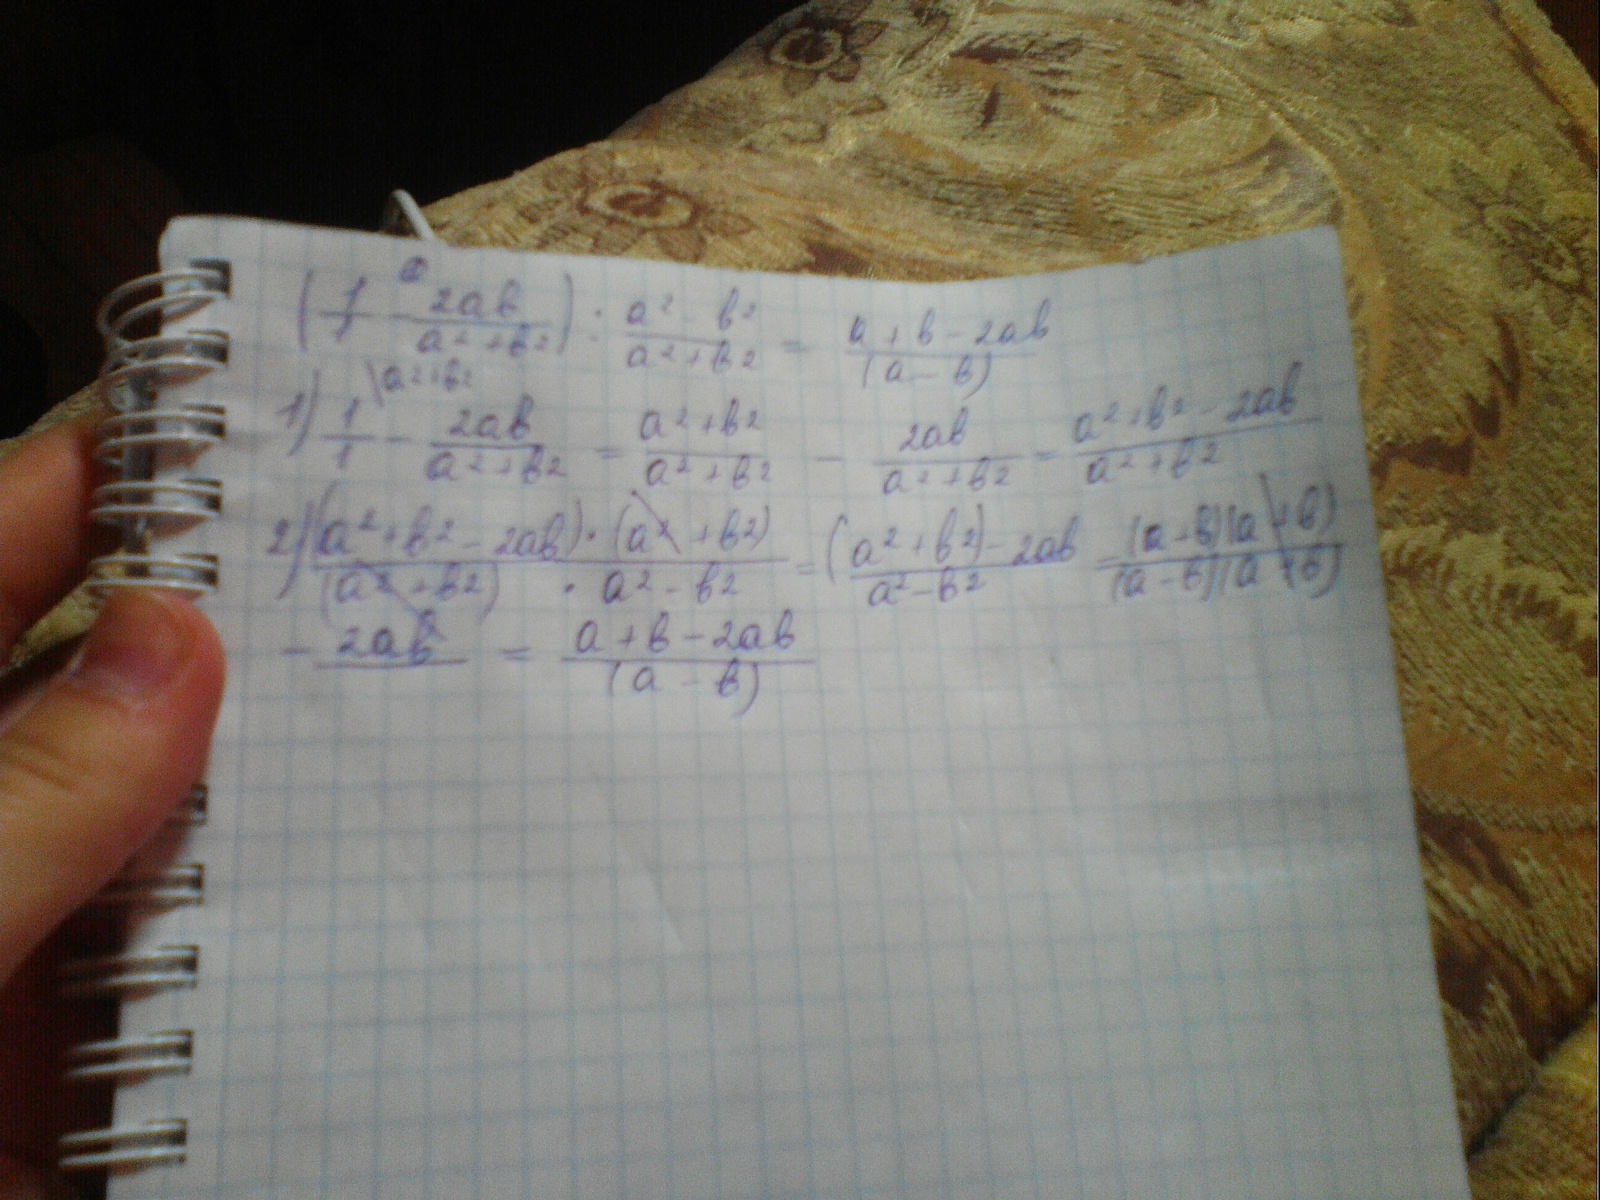 (1/1 - 2ab/(a²+b²)) : (a²-b²)/(a²+b²) = (a+b-2ab)/(a-b)
1) 1/1 \a²+b² - 2ab/(a²+b²) = (a²+b²)/(a²+b²) - 2ab/(a²+b²) = (a²+b²-2ab)/(a²+b²)
2) (a²+b²-2ab)·(a²+b²)/((a²+b²)·a²-b²) = (a²+b²)-2ab/(a²-b²) = (a+b)(a+b)/(a-b)(a+b)
- 2ab/ = (a+b-2ab)/(a-b)